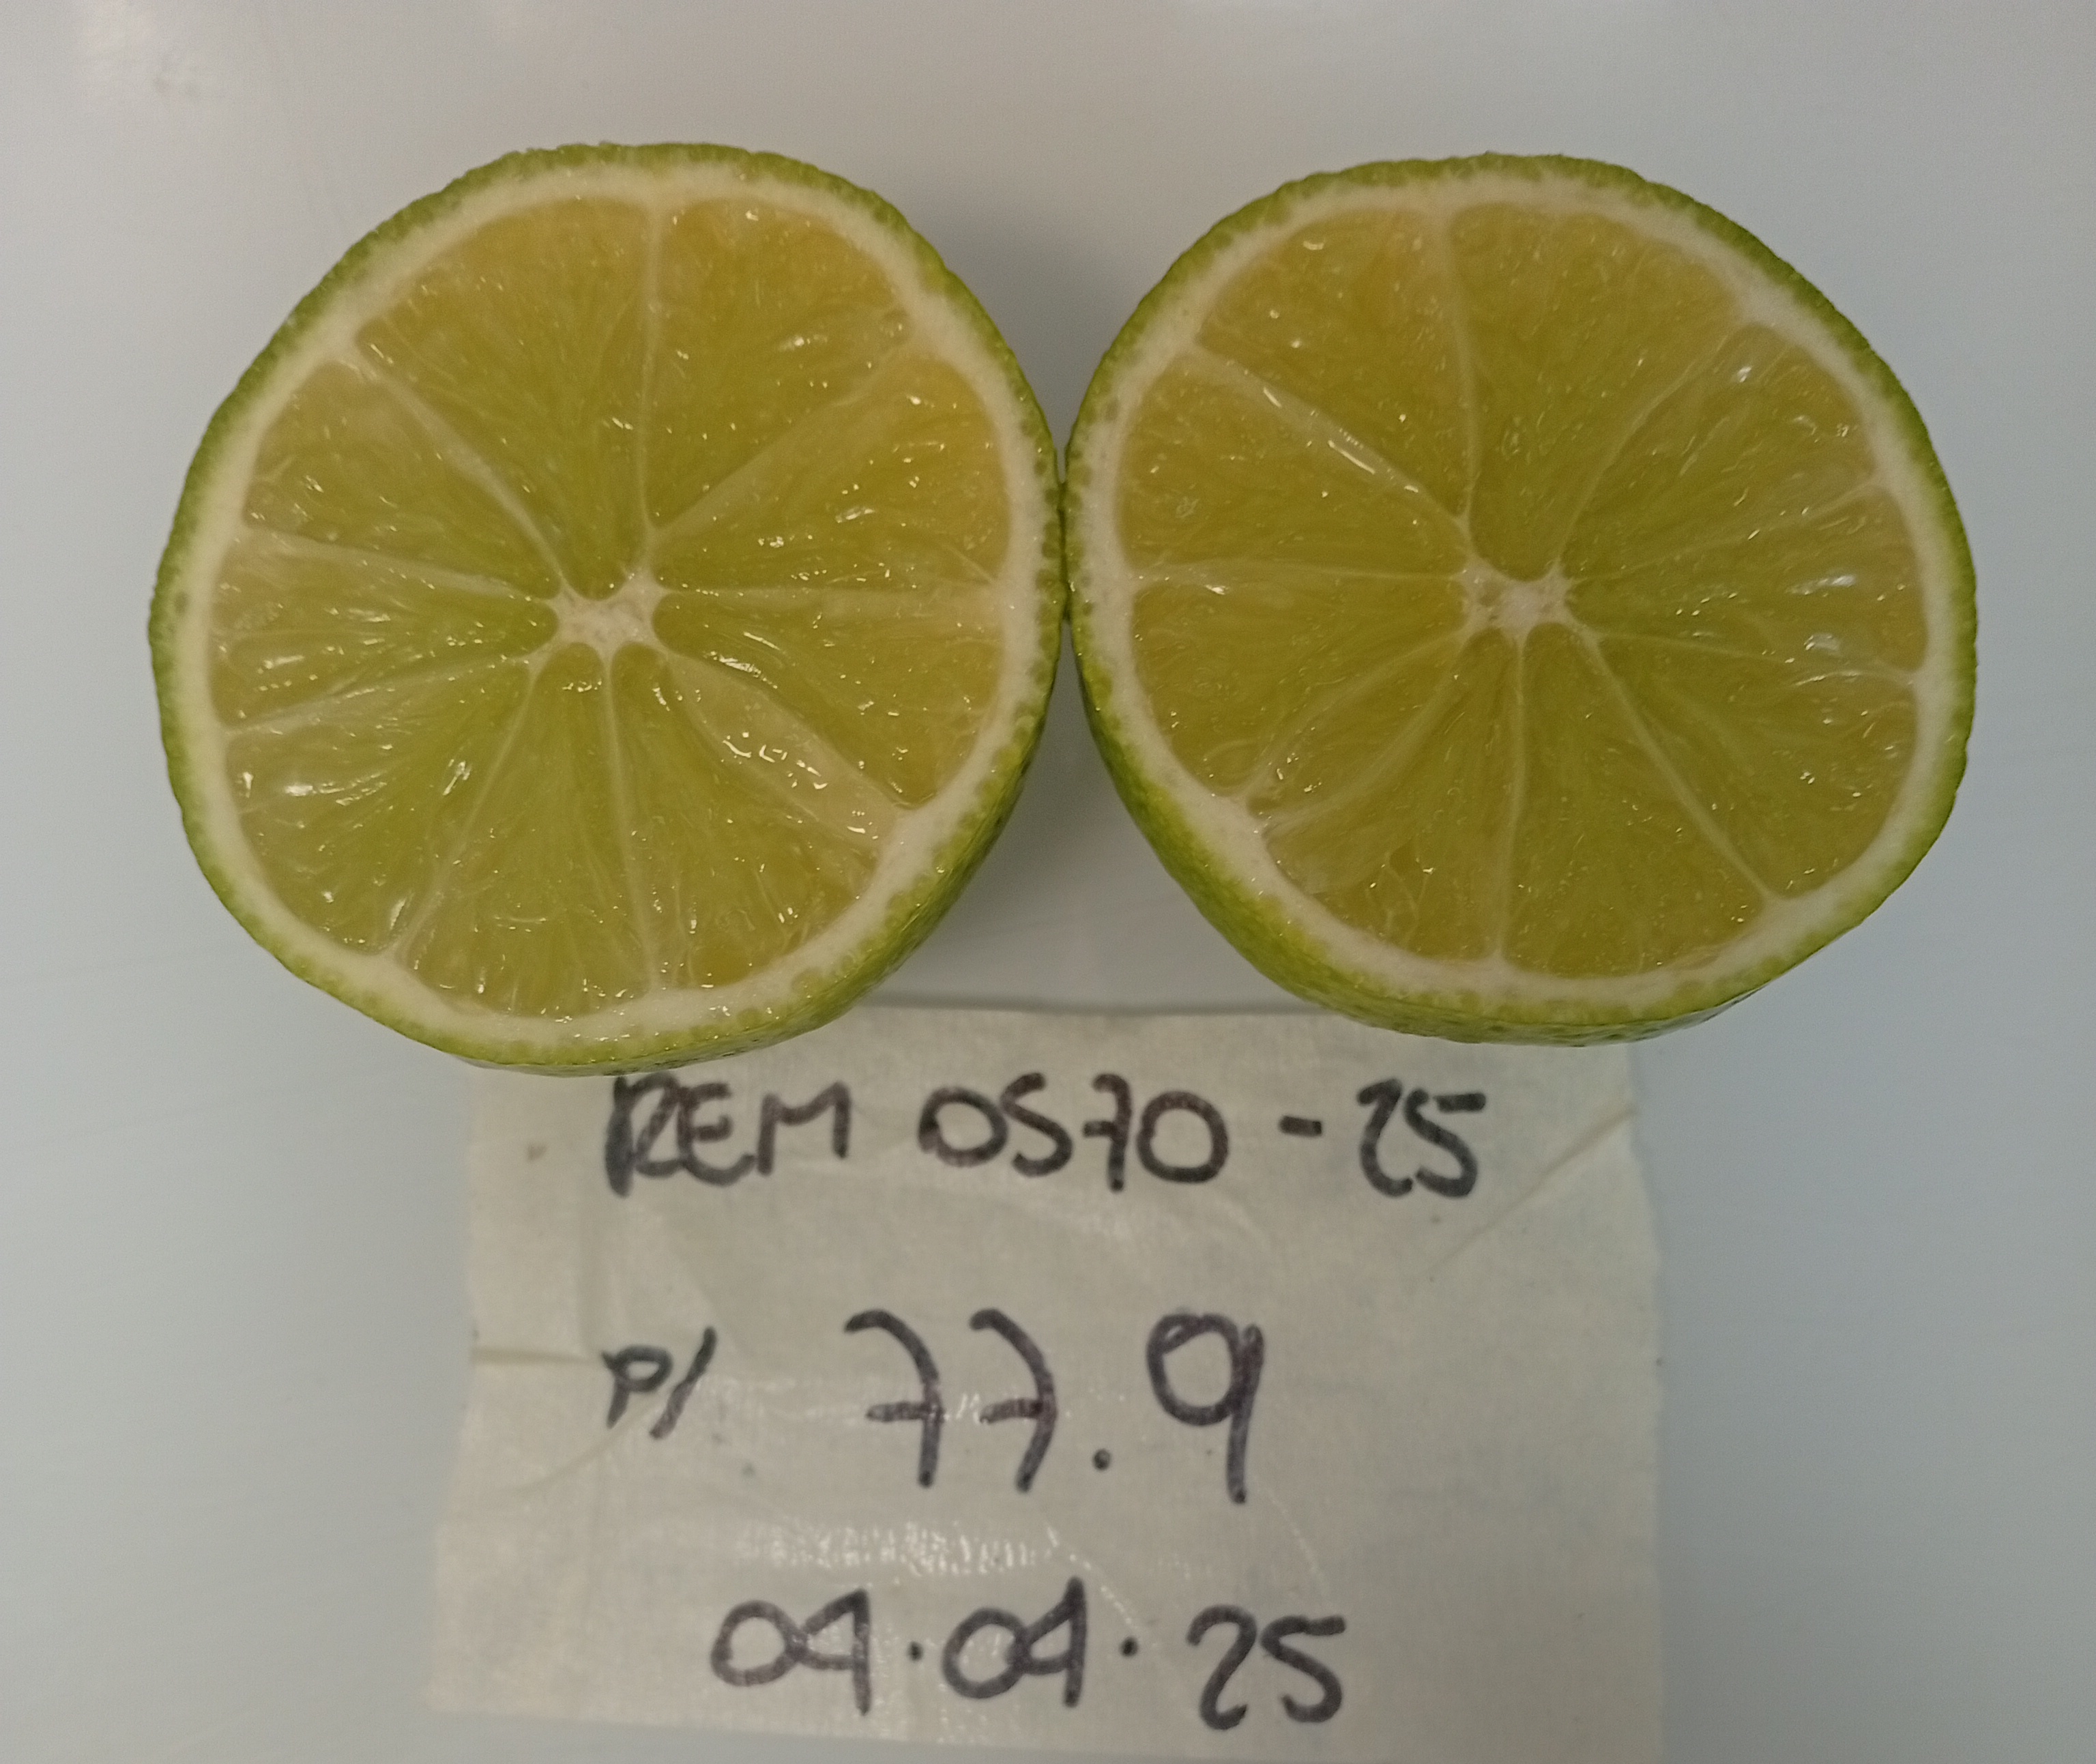 REM 0570-25
P/ 77.9
04.04.25